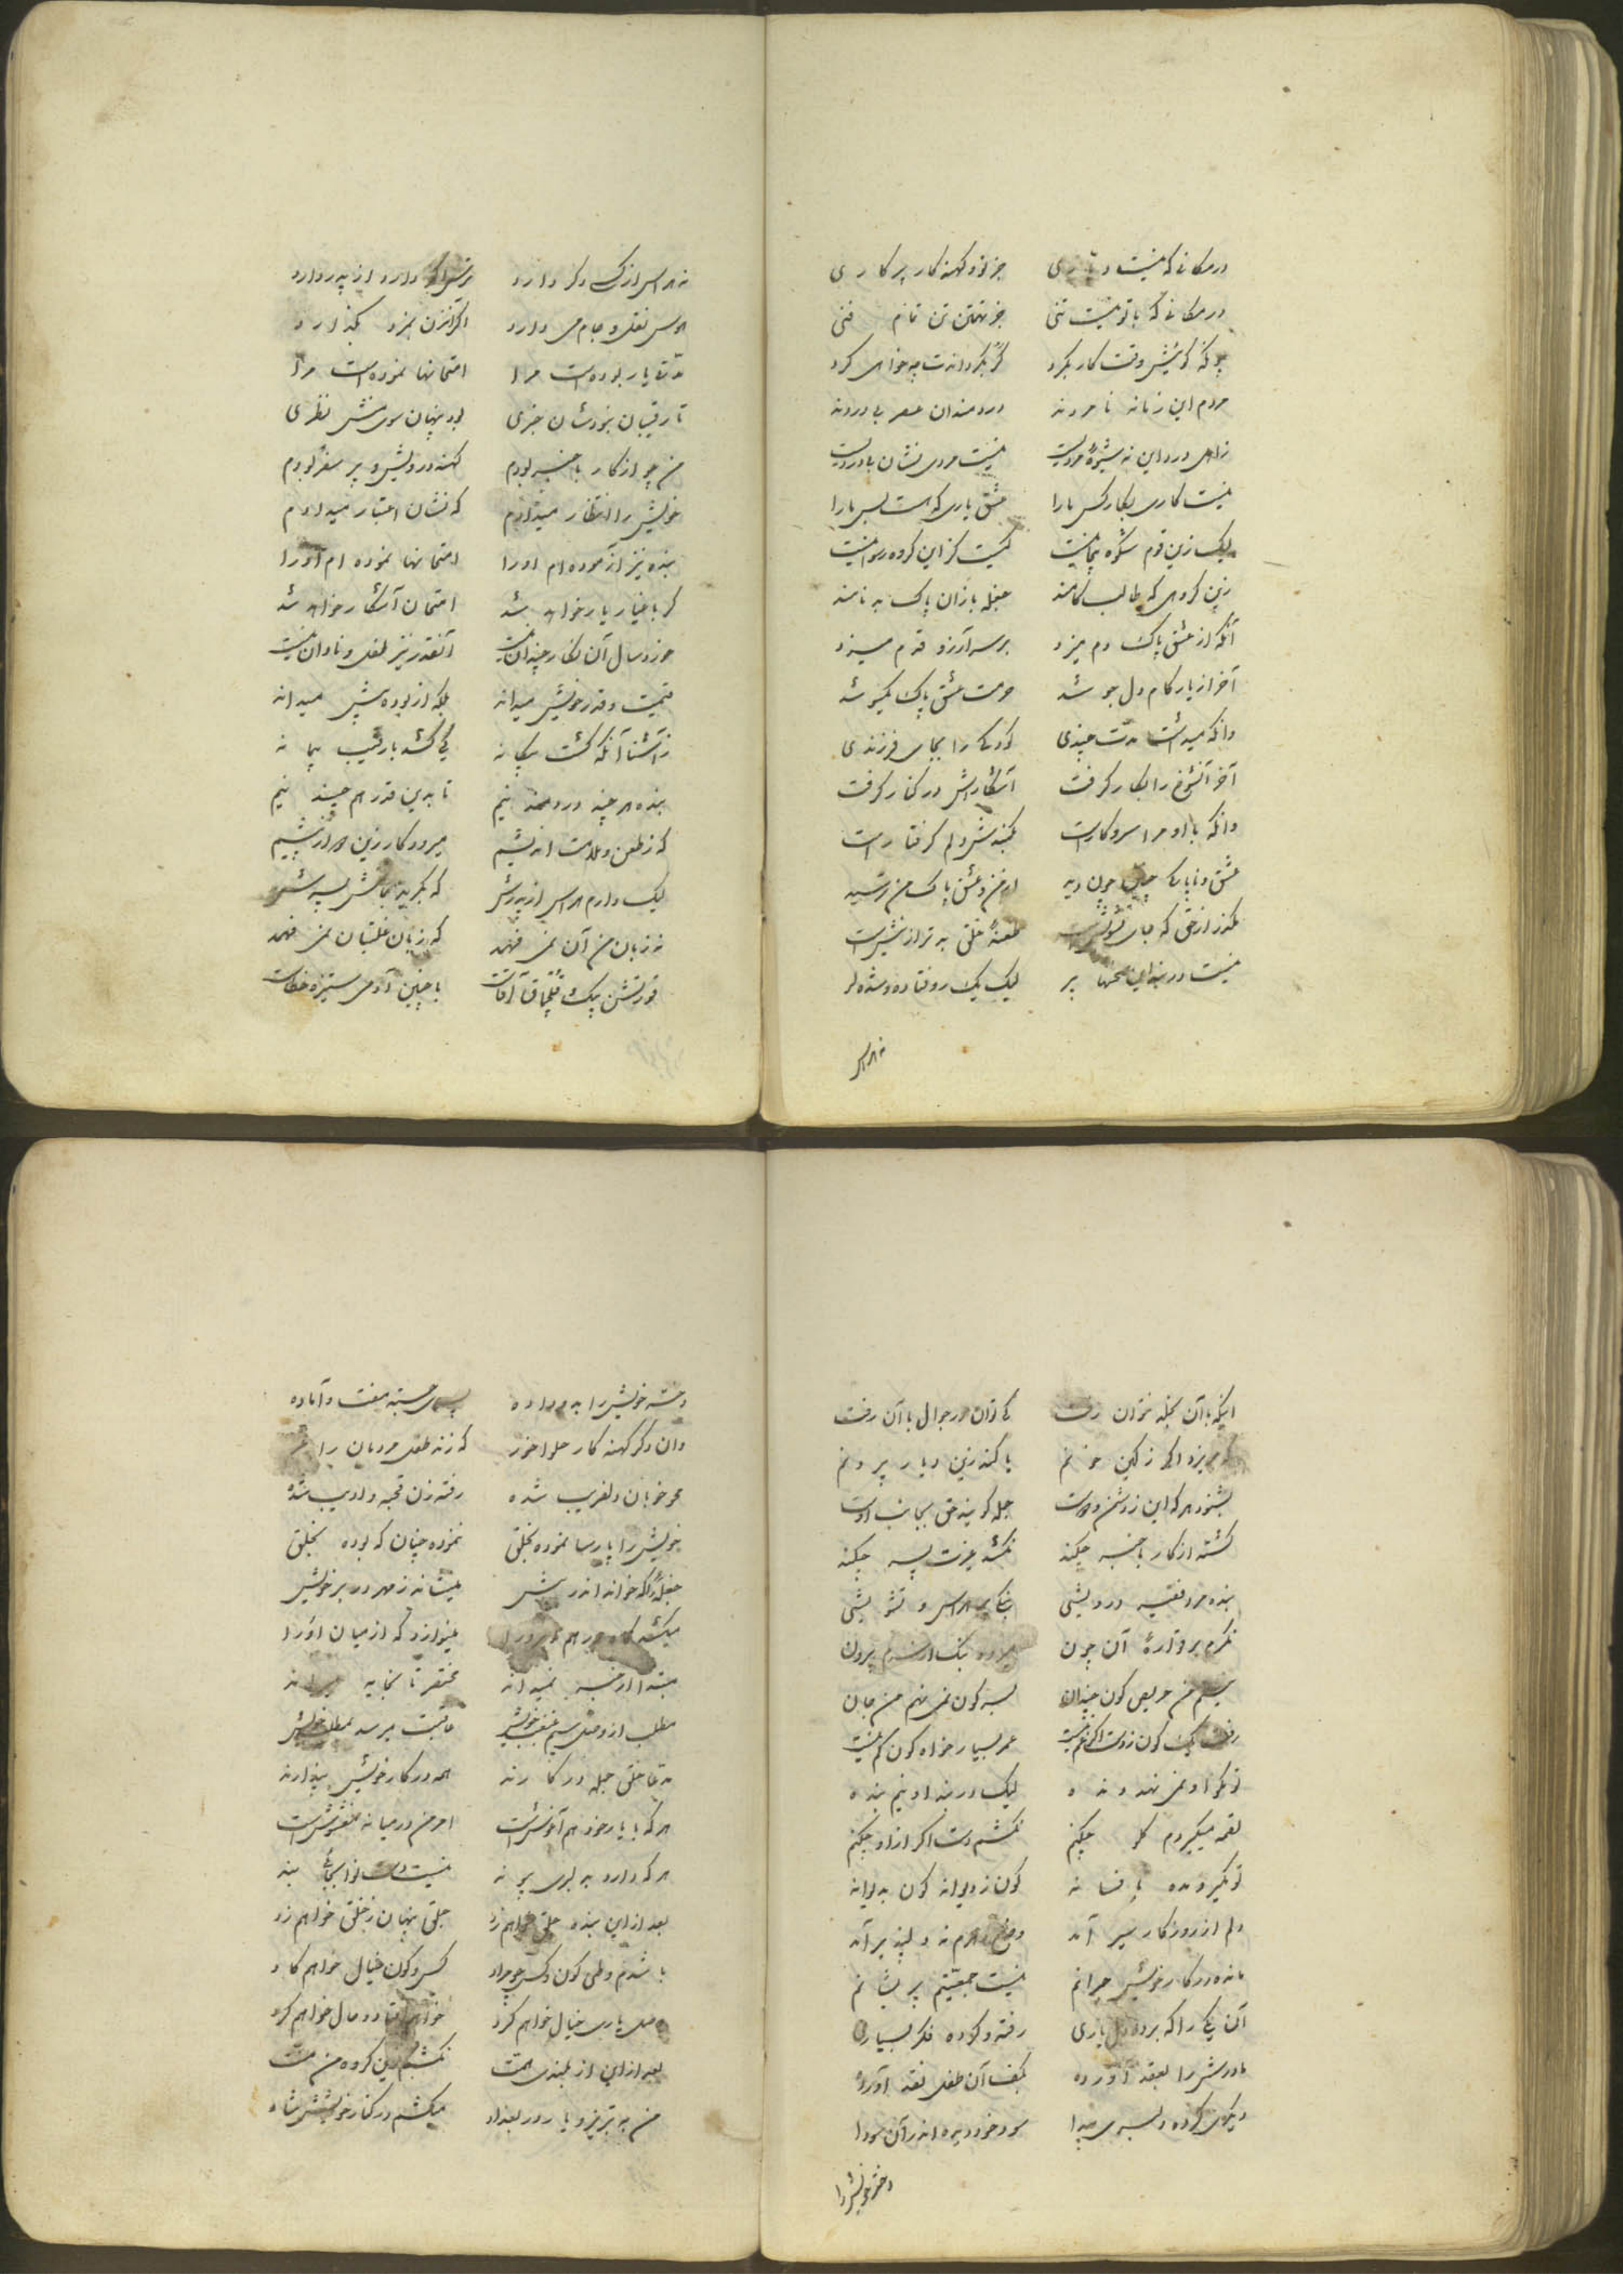 در مکانی که نیست دیاری جز تو و کهنه کار پر کاری
در مکانی که با تو نیست تنی جز تهمتن تن تمام فنی
چونکه کویش وقت کار بکرد گر بگردانمت چه خواهی کرد
مردم این زمانه نامردند دردمندان عصر بی دردند
زاهل درد این نه شیوهٔ مردیست نیست مردی نشان بادردیست
نیست کاری بکار کس ما را عشق یاری که هست بس ما را
لیک زین قوم شکوه بیجا نیست کیست کز این گروه رسوا نیست
زین گروهی که طالب کامند جمله یاران پاک بدنامند
آنکه از عشق پاک دم میزد بر سر آرزو قدم میزد
آخر از یار کام دل جو شد حرمت عشق پاک یکسو شد
وانکه میداشت مدت چندی کودکی را بجای فرزندی
آخر آنشوخ را بکار گرفت آشکاراش در کنار گرفت
وانکه با او مرا سر و کار است کمندش دلم گرفتار است
عشق و ناپاکی چنین چون دید از من و عشق پاک من رنجید
بگذر از حق که جای تشویش است طعنهٔ خلق بدتر از نیش است
نیست در بند این سخنها پر لیک یک رو فتاده و شده لر
نه هراس
نه هراس از کس دگر دارد ترس اگر دارد از پدر دارد
هوس نقل و جام می دارد اگر آنزن بمزد بگذارد
مدتی یار بوده است مرا امتحانها نموده است مرا
تا رقیبان نبودشان خبری بود پنهان سوی منش نظری
من چو از کار با خبر بودم کهنه درویش و پر سفر بودم
خویش را انتظار میدادم که نشان اعتبار میدادم
بنده نیز آزموده ام او را امتحانها نموده ام او را
گر باغیار یار خواهد شد امتحان آشکار خواهد شد
خورد سال آن نگار چندان نیست آنقدر نیز طفل و نادان نیست
قیمت و قدر خویش میداند بلکه از بوده بیش میداند
ز آشنا آنکه گشت بیگانه کی کشد با رقیب پیمانه
بنده هر چند دردمند نیم تا بدین قدر هم چند نیم
که ز طعن و ملامت اندیشم میرود کار زین هراز پیشم
لیک دارم هراس از پدرش که بگرید بجانش پسرش
نه زبان من آن نمی فهمد که زبان غلتبان نمی فهمد
قورتشن بیک قلماق آقاست با چنین آدمی ستیزه خطاست
اینکه با آن بجله نتوان رفت کی توان در جوال با آن رفت
گر بریزد اگر ز کین خونم یا کند زین دیار بیرونم
بشنود هر که این ز دشمن و دوست جمله گویند حق بجانب اوست
گشته از کار با خبر چکند نکشد عزت پسر چکند
بنده مرد فقیر درویشی بی هراس و تشویشی
نگرم بر قوارهٔ آن چون میرود بنگ از سرم بیرون
نیستم من حریص کون چندان بسر کون نمی نهم من جان
رفت یک کون ز دست اگر غم نیست عمر بسیار خواه کون کم نیست
تو مگو او نمی نهد دنده لیک در بند او نیم بنده
لقمه میگیردم گلو چکنم نکشم دست اگر از او چکنم
تو نگیر و مده بافسانه کون ز دیوانه کون به دیوانه
دلم از روزگار سیر آمد وضع مردم نه دلپذیر آمد
مانده در کار خویش حیرانم نیست جمعیتم پریشانم
آن یکی را که برده دل یاری رفته و کرده فکر بسیاری
مادرش را بعقد آورده بکف آن طفل نقد آورده
دیگری کرده دلبری پیدا سود خود دیده اندر آن سودا
دختر خویش را
دختر خویش را بدو داده پسری جسته مفت و آماده
وان دگر کهنه کار حلوا خور که زند طفل مردمان را غر
محو خوبان دلفریب شده رفته زن قحبه و ادیب شده
خویش را پارسا نموده بخلق نموده چنان که بوده بخلق
جمله را که خوانداند رپیش مینشاند ز مهر در بر خویش
میکشد گاه در هم ابرو را مینوازد که از میان او را
مبتدا از خبر نمیداند مختصر تا بجایه میراند
مطلب از وصل سیم غبغب خویش عاقبت میرسد بمطلب خویش
مدعی خلق جمله در کارند همه در کار خویش بیدارند
هر که با یار خود هم آغوش است امر من در میانه مغشوش است
هر که دارد به دلبری پیوند نیست دست ترا بجائی بند
بعد از این بنده جلق خواهم زد جلق پنهان ز خلق خواهم زد
با شدم وطی کون و کس چو مراد کس و کون خیال خواهم گاد
وصل یاری خیال خواهم کرد خواهم افتاد و مال خواهم کرد
بعد از این از بلندی همت نکشم زین گروه من منت
من به تبریز و یار در بغداد میکشم در کنار خویشش شاد